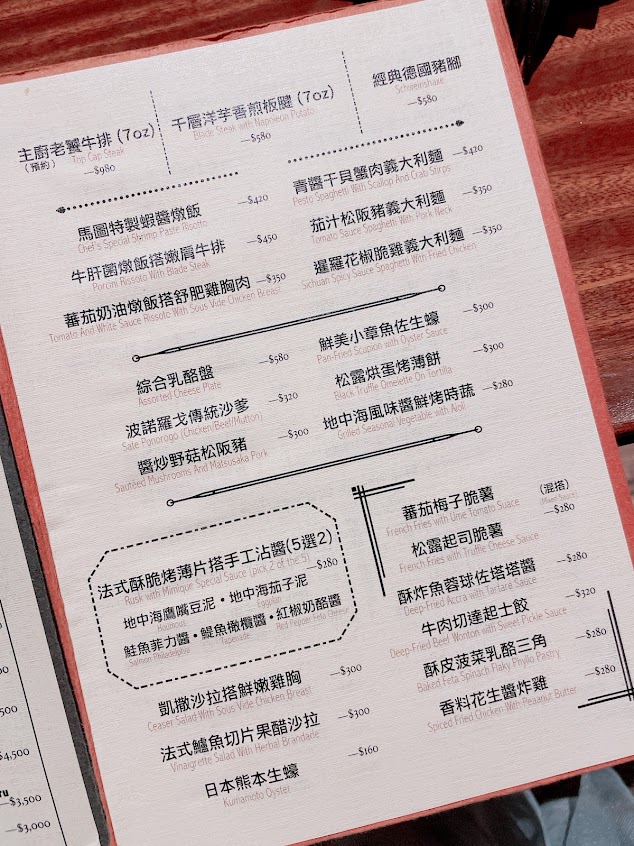 主廚老饕牛排 (7oz)
(預約) Top Cap Steak
—$980
千層洋芋香煎板腱 (7oz)
Blade Steak with Napoleon Potato
—$580
經典德國豬腳
Schweinshaxe
—$580
馬圖特製蝦醬燉飯 —$420
Chef's Special Shrimp Paste Risotto
牛肝菌燉飯搭嫩肩牛排 —$450
Porcini Rissoto With Blade Steak
蕃茄奶油燉飯搭舒肥雞胸肉 —$350
Tomato And White Sauce Rissoto With Sous Vide Chicken Breast
青醬干貝蟹肉義大利麵 —$420
Pesto Spaghetti With Scallop And Crab Stirps
茄汁松阪豬義大利麵 —$350
Tomato Sauce Spaghetti With Pork Neck
暹羅花椒脆雞義大利麵 —$350
Sichuan Spicy Sauce Spaghetti With Fried Chicken
綜合乳酪盤 —$580
Assorted Cheese Plate
波諾羅戈傳統沙爹 —$320
Sate Ponorogo (Chicken/Beef/Mutton)
醬炒野菇松阪豬 —$300
Sautéed Mushrooms And Matsusaka Pork
鮮美小章魚佐生蠔 —$300
Pan-Fried Scupion with Oyster Sauce
松露烘蛋烤薄餅 —$300
Black Truffle Omelette On Tortilla
地中海風味醬鮮烤時蔬 —$280
Grilled Seasonal Vegetable with Aioli
法式酥脆烤薄片搭手工沾醬(5選2)
Rusk with Mimique Special Sauce (pick 2 of the 5) —$280
地中海鷹嘴豆泥・地中海茄子泥
Houmous Eggplan
鮭魚菲力醬・鯷魚橄欖醬・紅椒奶酪醬
Salmon Philadelphia Tapenade Red Pepper Feta Cheese
凱撒沙拉搭鮮嫩雞胸 —$300
Ceaser Salad With Sous Vide Chicken Breast
法式鱸魚切片果醋沙拉 —$300
Vinaigrette Salad With Herbal Brandade
日本熊本生蠔 —$160
Kumamoto Oyster
蕃茄梅子脆薯 (混搭)
French Fries with Ume Tomato Suace (Mixed Sauce)
—$280
松露起司脆薯
French Fries with Truffle Cheese Sauce
酥炸魚蓉球佐塔塔醬 —$280
Deep-Fried Accra with Tartare Sauce
牛肉切達起士餃 —$320
Deep-Fried Beef Wonton with Sweet Pickle Sauce
酥皮菠菜乳酪三角 —$280
Baked Feta Spinach Flaky Phyllo Pastry
香料花生醬炸雞 —$280
Spiced Fried Chicken With Peaanut Butter
$4,500
—$3,500
—$3,000